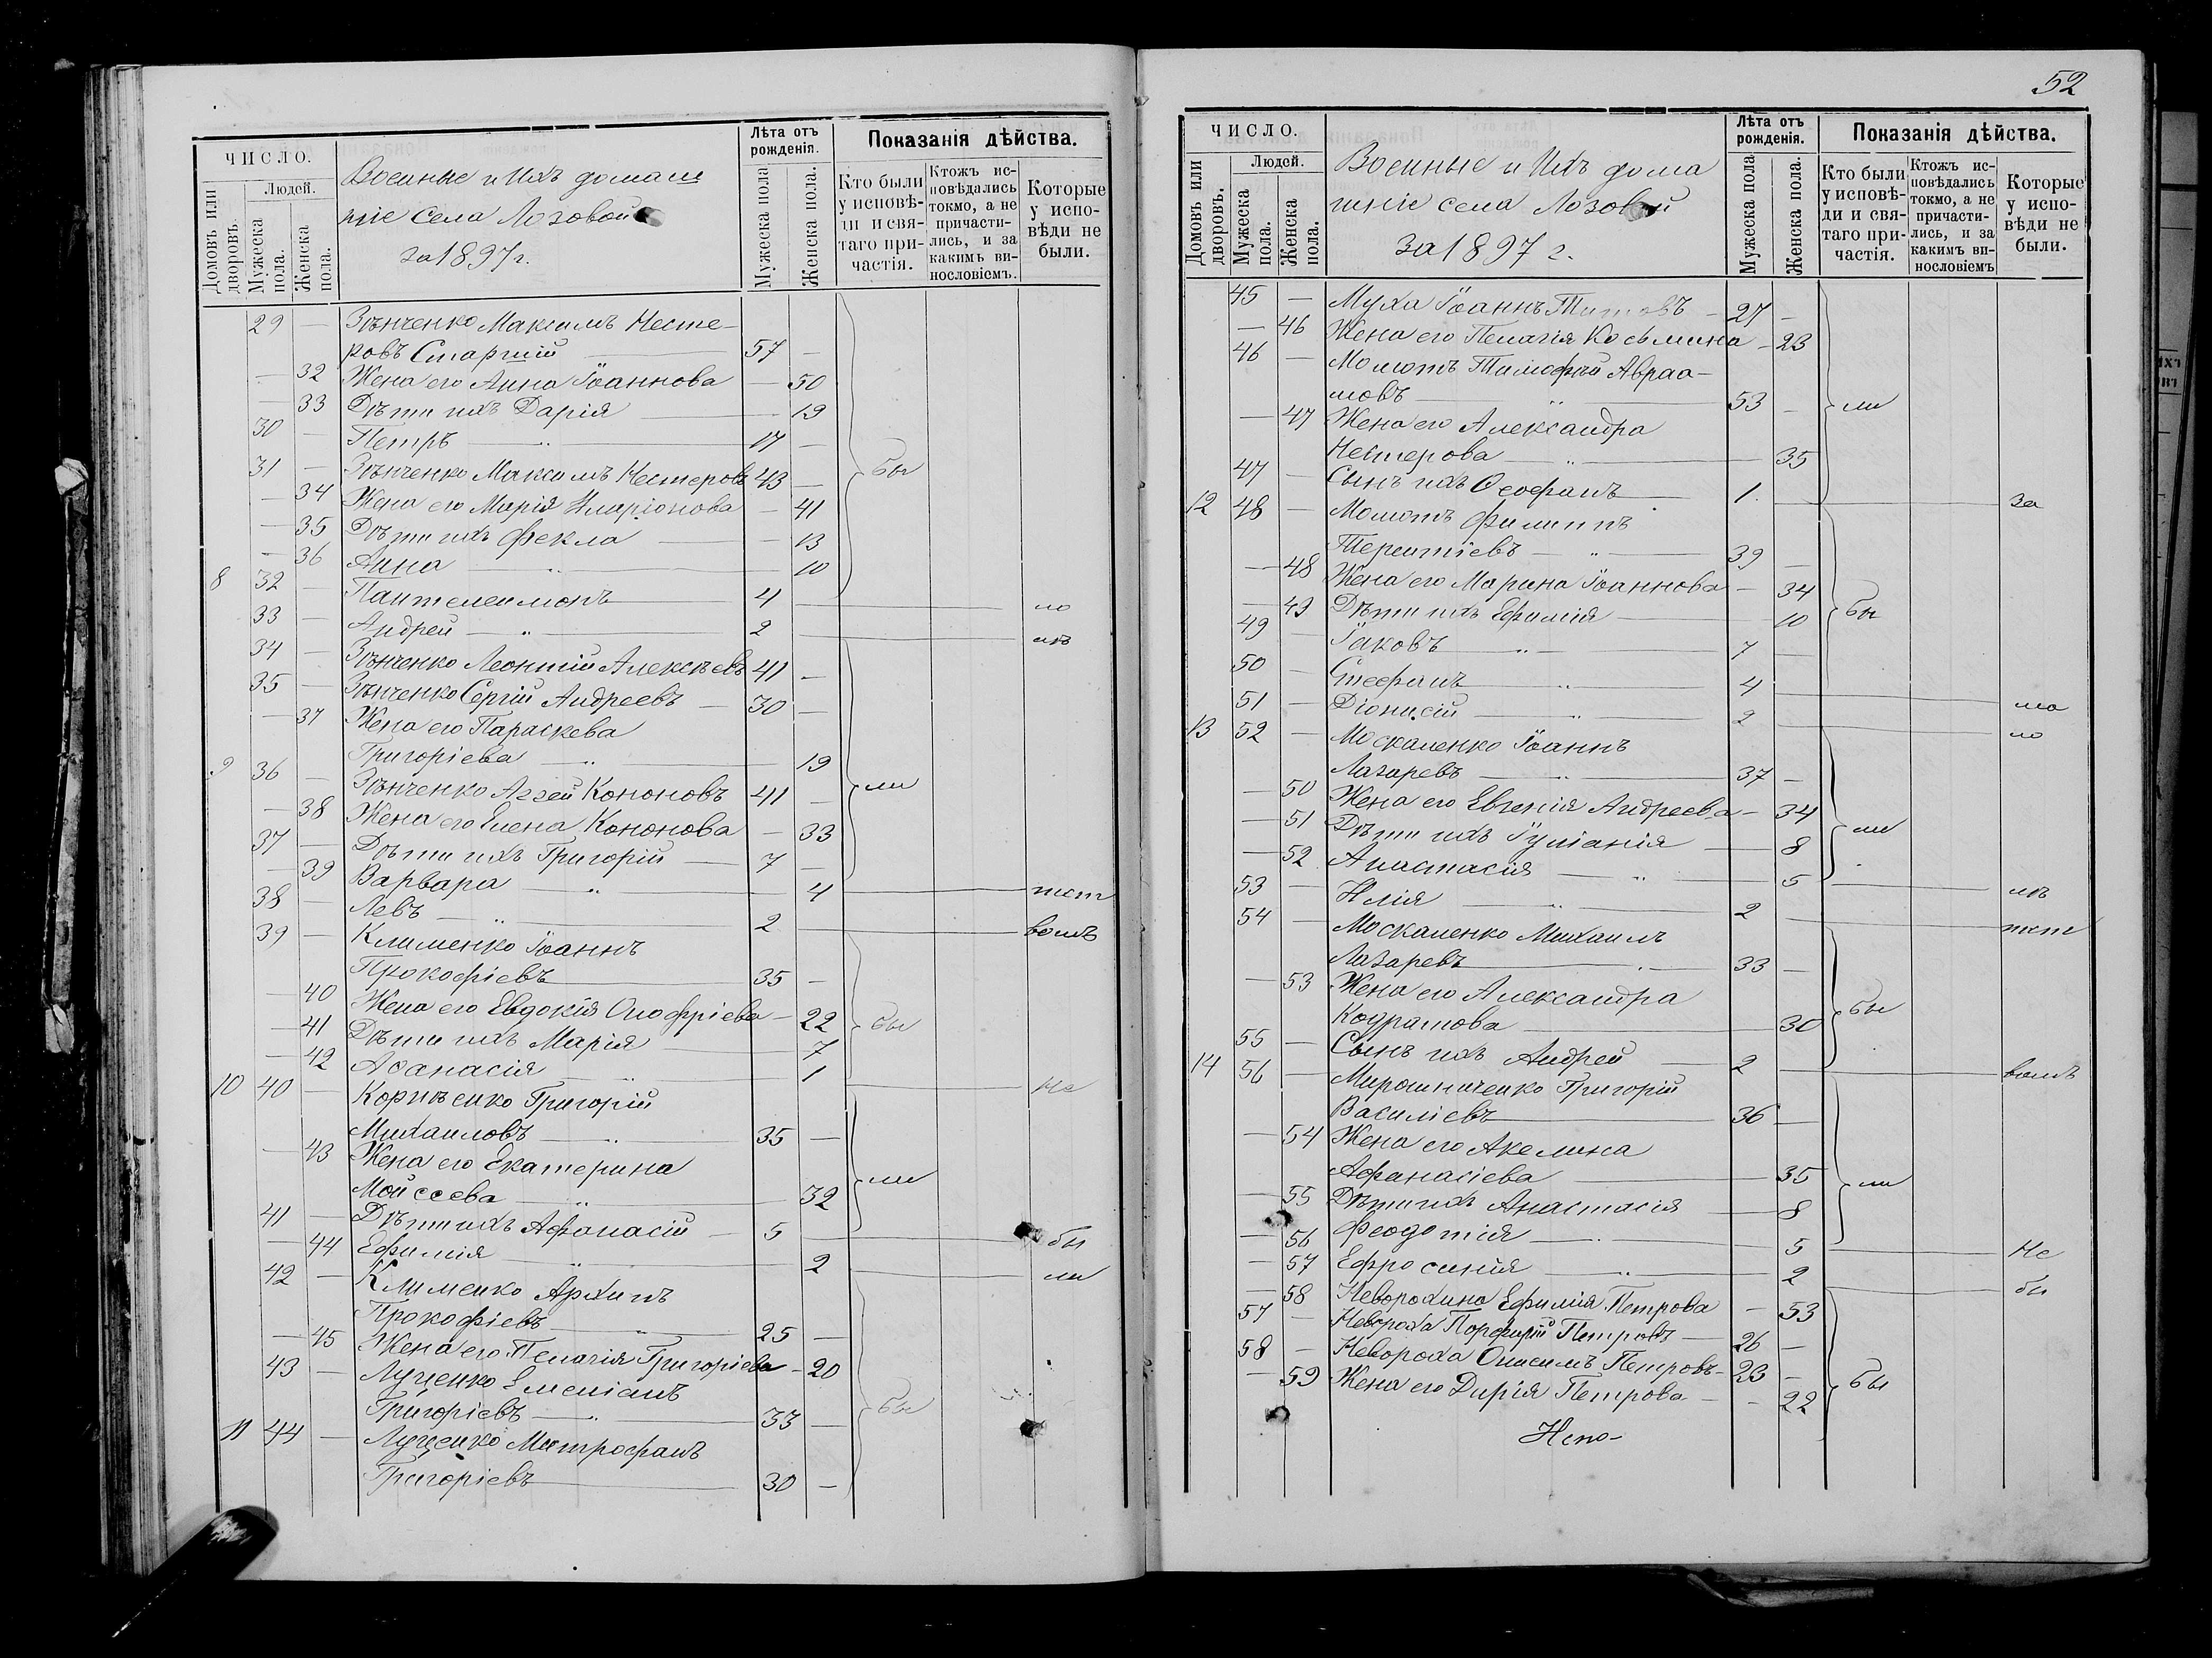 ЧИСЛО.
Домовъ или дворовъ.
Людей.
Мужеска пола.
Женска пола.
Военные и Ихъ домаш
ніе Села Лозовой
за 1897 г.
Лѣта отъ рожденія.
Мужеска пола
Женска пола.
Показанія дѣйства.
Кто были у исповѣди и святаго причастія.
Ктожъ исповѣдались токмо, а не причастились, и за какимъ винословіемъ.
Которые у исповѣди не были.
29 — Зѣнченко Максимъ Несте-
ровъ Старшій — 57 —
— 32 Жена его Анна Іоаннова — 50
— 33 Дѣти ихъ Дарія — 19
30 — Петръ — " — 17 —
31 — Зѣнченко Максимъ Нестеровъ 43 — бы
— 34 Жена его Марія Иларіонова — 41
— 35 Дѣти ихъ Фекла — 13
— 36 Анна — " — 10
8 32 — Пантелеимонъ — 4 — ло
33 — Андрей — " — 2 — лѣ
34 — Зѣнченко Леонтій Алексѣевъ 41 —
35 — Зѣнченко Сергій Андреевъ — 30 —
— 37 Жена его Параскева
Григоріева — " — 19
9 36 — Зѣнченко Аггей Кононовъ 41 — ли
— 38 Жена его Елена Кононова — 33
37 — Дѣти ихъ Григорій — 7 —
— 39 Варвара — " — 4 — тст
38 — Левъ — " — 2 — вомъ
39 — Клименко Іоаннъ
Прокофіевъ — 35 —
— 40 Жена его Евдокія Онофріева — 22 бы
— 41 Дѣти ихъ Марія — 7
— 42 Аѳанасія — " — 1 — Не
10 40 — Корнѣенко Григорій
Михаиловъ — " — 35 —
— 43 Жена его Екатерина
Мойсеева — " — 32 ли
41 — Дѣти ихъ Афанасій — 5 — бы
— 44 Ефимія — " — 2 — ли
42 — Клименко Архипъ
Прокофіевъ — " — 25 —
— 45 Жена его Пелагія Григоріева — 20
43 — Луценко Емеліанъ
Григоріевъ — " — 33 — бы
11 44 — Луценко Митрофанъ
Григоріевъ — 30 —
52
ЧИСЛО.
Домовъ или дворовъ.
Людей.
Мужеска пола.
Женска пола.
Военные и Ихъ дома
шніе села Лозовой
за 1897 г.
Лѣта отъ рожденія.
Мужеска пола
Женска пола.
Показанія дѣйства.
Кто были у исповѣди и святаго причастія.
Ктожъ исповѣдались токмо, а не причастились, и за какимъ винословіемъ
Которые у исповѣди не были.
45 — Муха Іоаннъ Титовъ — 27 —
— 46 Жена его Пелагія Косьмина — 23
46 — Момотъ Тимофѣй Авраа-
мовъ — " — 53 — ли
— 47 Жена его Александра
Нестерова — " — 35
47 — Сынъ ихъ Ѳеофанъ — 1. — за
12 48 — Момотъ Филиппъ
Терентіевъ — " — 39 —
— 48 Жена его Марина Іоаннова — 34
— 49 Дѣти ихъ Ефимія — 10 бы
49 — Іаковъ — " — 7 —
50 — Стефанъ — " — 4 — ма
51 — Діонисій — " — 2 — ло
13 52 — Москаленко Іоаннъ
Лазаревъ — " — 37 —
— 50 Жена его Евгенія Андреева — 34
— 51 Дѣти ихъ Іуліанія — 8 ли
— 52 Анастасія — " — 5 — лѣ
53 — Илія — " — 2 — тст
54 — Москаленко Михаилъ
Лазаревъ — 33 —
— 53 Жена его Александра
Кодратова — 30 бы
55 — Сынъ ихъ Андрей — 2 — вомъ
14 56 — Мирошниченко Григорій
Василіевъ — 36 —
— 54 Жена его Акелина
Афанасіева — 35 ли
— 55 Дѣти ихъ Анастасія — 8
— 56 Феодотія — " — 5 — Не
— 57 Ефросинія — " — 2 — бы
— 58 Неворохина Ефимія Петрова — 53
57 — Невороха Порфирій Петровъ — 26 —
58 — Невороха Онисимъ Петровъ — 23 — бы
— 59 Жена его Дарія Петрова — 22
Непо-